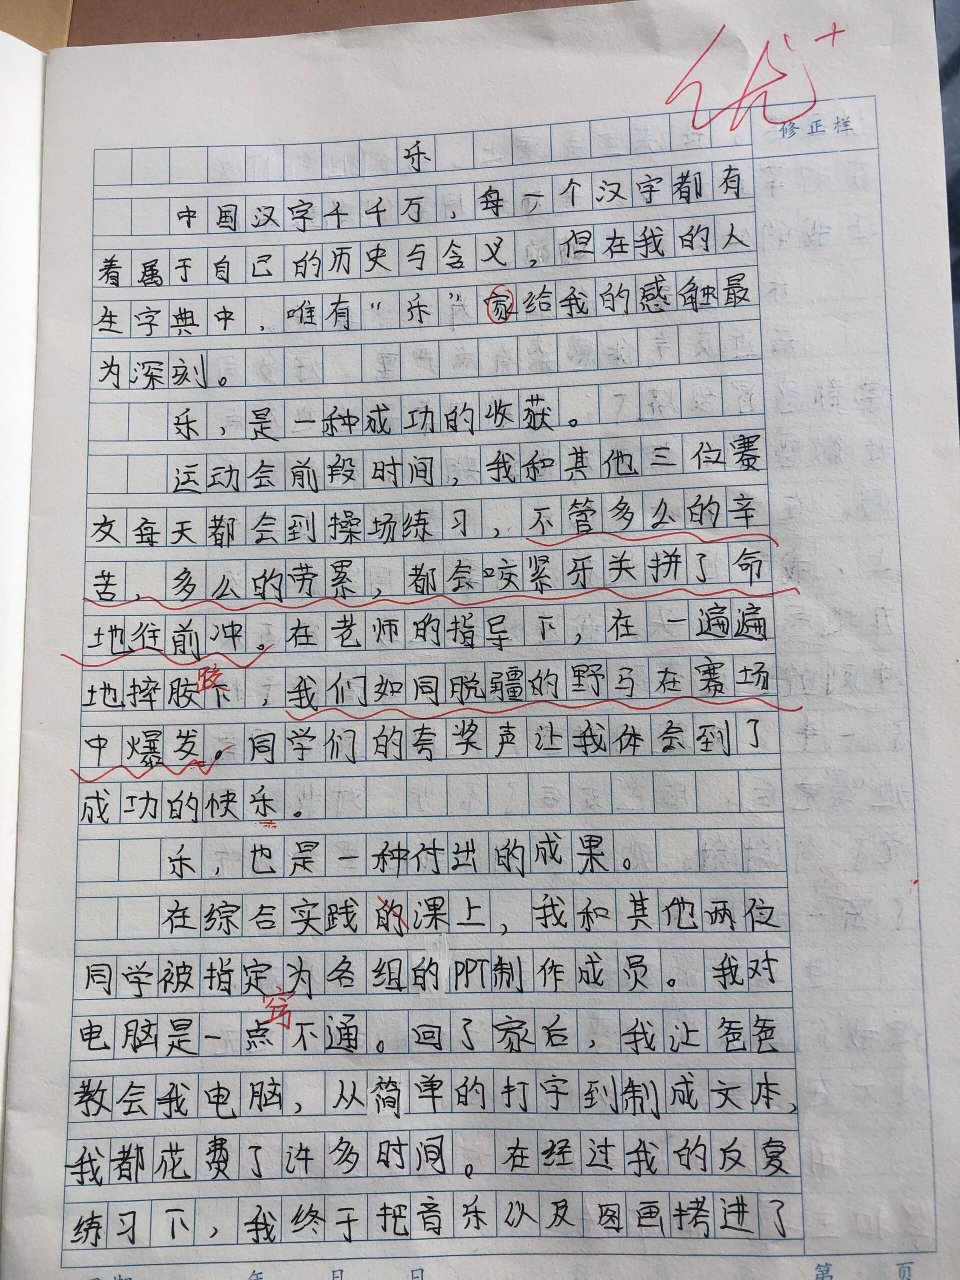 优+
修正栏
乐
中国汉字千千万，每一个汉字都有
着属于自己的历史与含义，但在我的人
生字典中，唯有“乐”家给我的感触最
为深刻。
乐，是一种成功的收获。
运动会前段时间，我和其他三位赛
友每天都会到操场练习，不管多么的辛
苦、多么的劳累，都会咬紧牙关拼了命
地往前冲。在老师的指导下，在一遍遍
地摔胶下，我们如同脱疆的野马在赛场
中爆发。同学们的夸奖声让我体会到了
成功的快乐。
乐，也是一种付出的成果。
在综合实践的课上，我和其他两位
同学被指定为各组的PPT制作成员。我对
电脑是一点不通。回了家后，我让爸爸
教会我电脑，从简单的打字到制成文本，
我都花费了许多时间。在经过我的反复
练习下，我终于把音乐以及图画拷进了
年 月 日
第 页